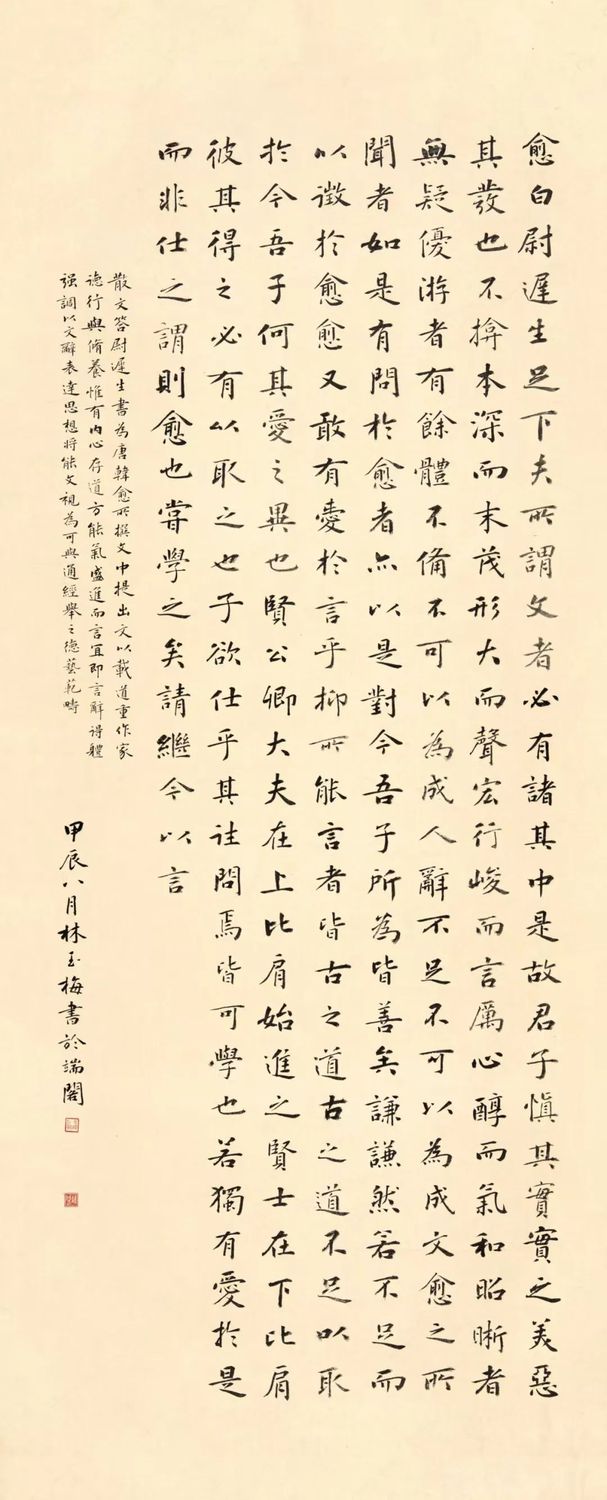 愈白尉遲生足下夫所謂文者必有諸其中是故君子慎其實實之美惡
其發也不揜本深而末茂形大而聲宏行峻而言厲心醇而氣和昭晰者
無疑優游者有餘體不備不可以為成人辭不足不可以為成文愈之所
聞者如是有問於愈者亦以是對今吾子所為皆善矣謙謙然若不足而
以徵於愈愈又敢有愛於言乎抑所能言者皆古之道古之道不足以取
於今吾子何其愛之異也賢公卿大夫在上比肩始進之賢士在下比肩
彼其得之必有以取之也子欲仕乎其往問焉皆可學也若獨有愛於是
而非仕之謂則愈也嘗學之矣請繼今以言
散文答尉遲生書為唐韓愈所撰文中提出文以載道重作家
德行與脩養惟有內心存道方能氣盛進而言宜即言辭得體
强調以文辭表達思想將能文視為可與通經舉之德藝範疇
甲辰八月林玉梅書於端閣